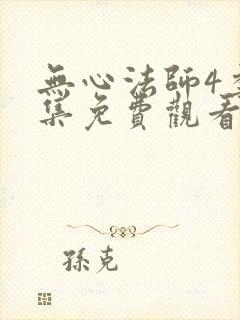 無心法師4
集免費觀看
孫克